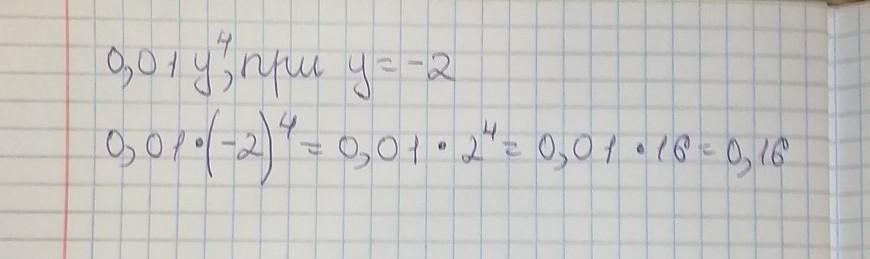 0,01 y⁴, при y = -2
0,01 · (-2)⁴ = 0,01 · 2⁴ = 0,01 · 16 = 0,16